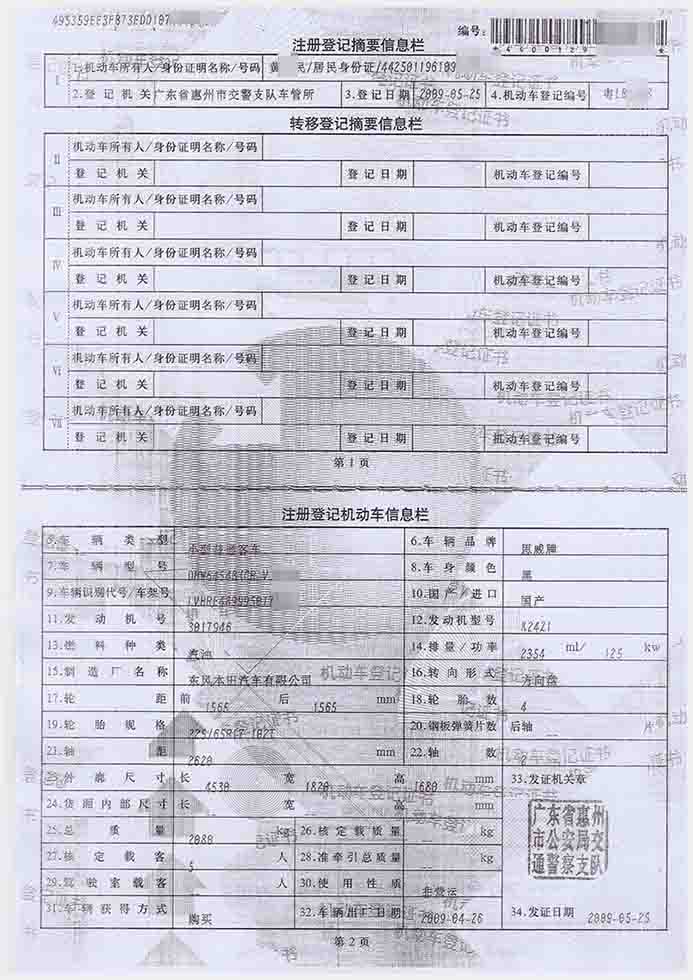 495359EE3FB73EDD107
编号:
*4500129
注册登记摘要信息栏
I
1.机动车所有人/身份证明名称/号码 黄 民/居民身份证/442501196109
2.登记机关 广东省惠州市交警支队车管所 3.登记日期 2009-05-25 4.机动车登记编号 粤L8
转移登记摘要信息栏
II
机动车所有人/身份证明名称/号码
登记机关 登记日期 机动车登记编号
III
机动车所有人/身份证明名称/号码
登记机关 登记日期 机动车登记编号
IV
机动车所有人/身份证明名称/号码
登记机关 登记日期 机动车登记编号
V
机动车所有人/身份证明名称/号码
登记机关 登记日期 机动车登记编号
VI
机动车所有人/身份证明名称/号码
登记机关 登记日期 机动车登记编号
VII
机动车所有人/身份证明名称/号码
登记机关 登记日期 机动车登记编号
第1页
注册登记机动车信息栏
5.车辆类型 小型普通客车 6.车辆品牌 思威牌
7.车辆型号 DHW6454B(CR-V 8.车身颜色 黑
9.车辆识别代号/车架号 LVHRE489595017 10.国产/进口 国产
11.发动机号 3017946 12.发动机型号 K24Z1
13.燃料种类 汽油 14.排量/功率 2354 ml/ 125 kw
15.制造厂名称 东风本田汽车有限公司 16.转向形式 方向盘
17.轮距 前 1565 后 1565 mm 18.轮胎数 4
19.轮胎规格 225/65R17 102T 20.钢板弹簧片数 后轴 -- 片
21.轴距 2620 mm 22.轴数 2
23.外廓尺寸 长 4530 宽 1820 高 1680 mm 33.发证机关章
24.货厢内部尺寸 长 -- 宽 -- 高 -- mm
25.总质量 2080 kg 26.核定载质量 -- kg
27.核定载客 5 人 28.准牵引总质量 -- kg
29.驾驶室载客 -- 人 30.使用性质 非营运
31.车辆获得方式 购买 32.车辆出厂日期 2009-04-26 34.发证日期 2009-05-25
广东省惠州
市公安局交
通警察支队
第2页